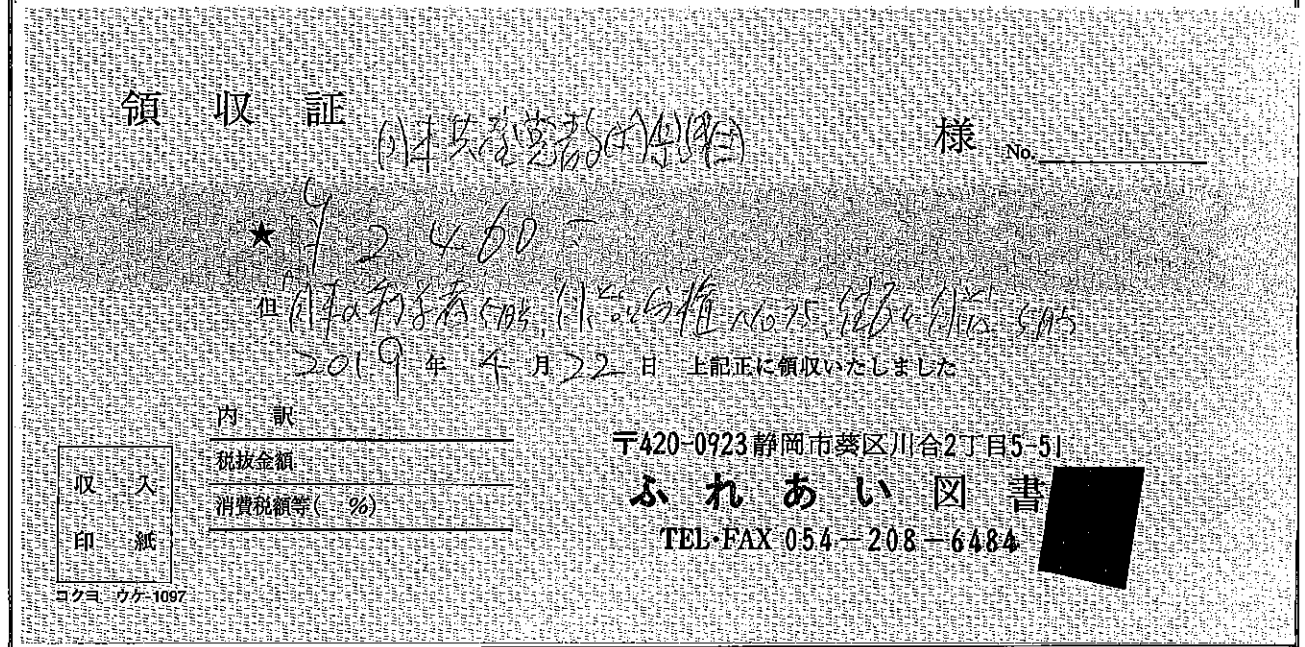 領 収 証
日本共産党 様 No.
★ ¥2,460-
但 5月号, 住民と 5月号
2019年 4月22日 上記正に領収いたしました
内 訳
税抜金額
消費税額等( %)
収 入
印 紙
コクヨ ウケ-1097
〒420-0923 静岡市葵区川合2丁目5-51
ふれあい図書
TEL・FAX 054-208-6484